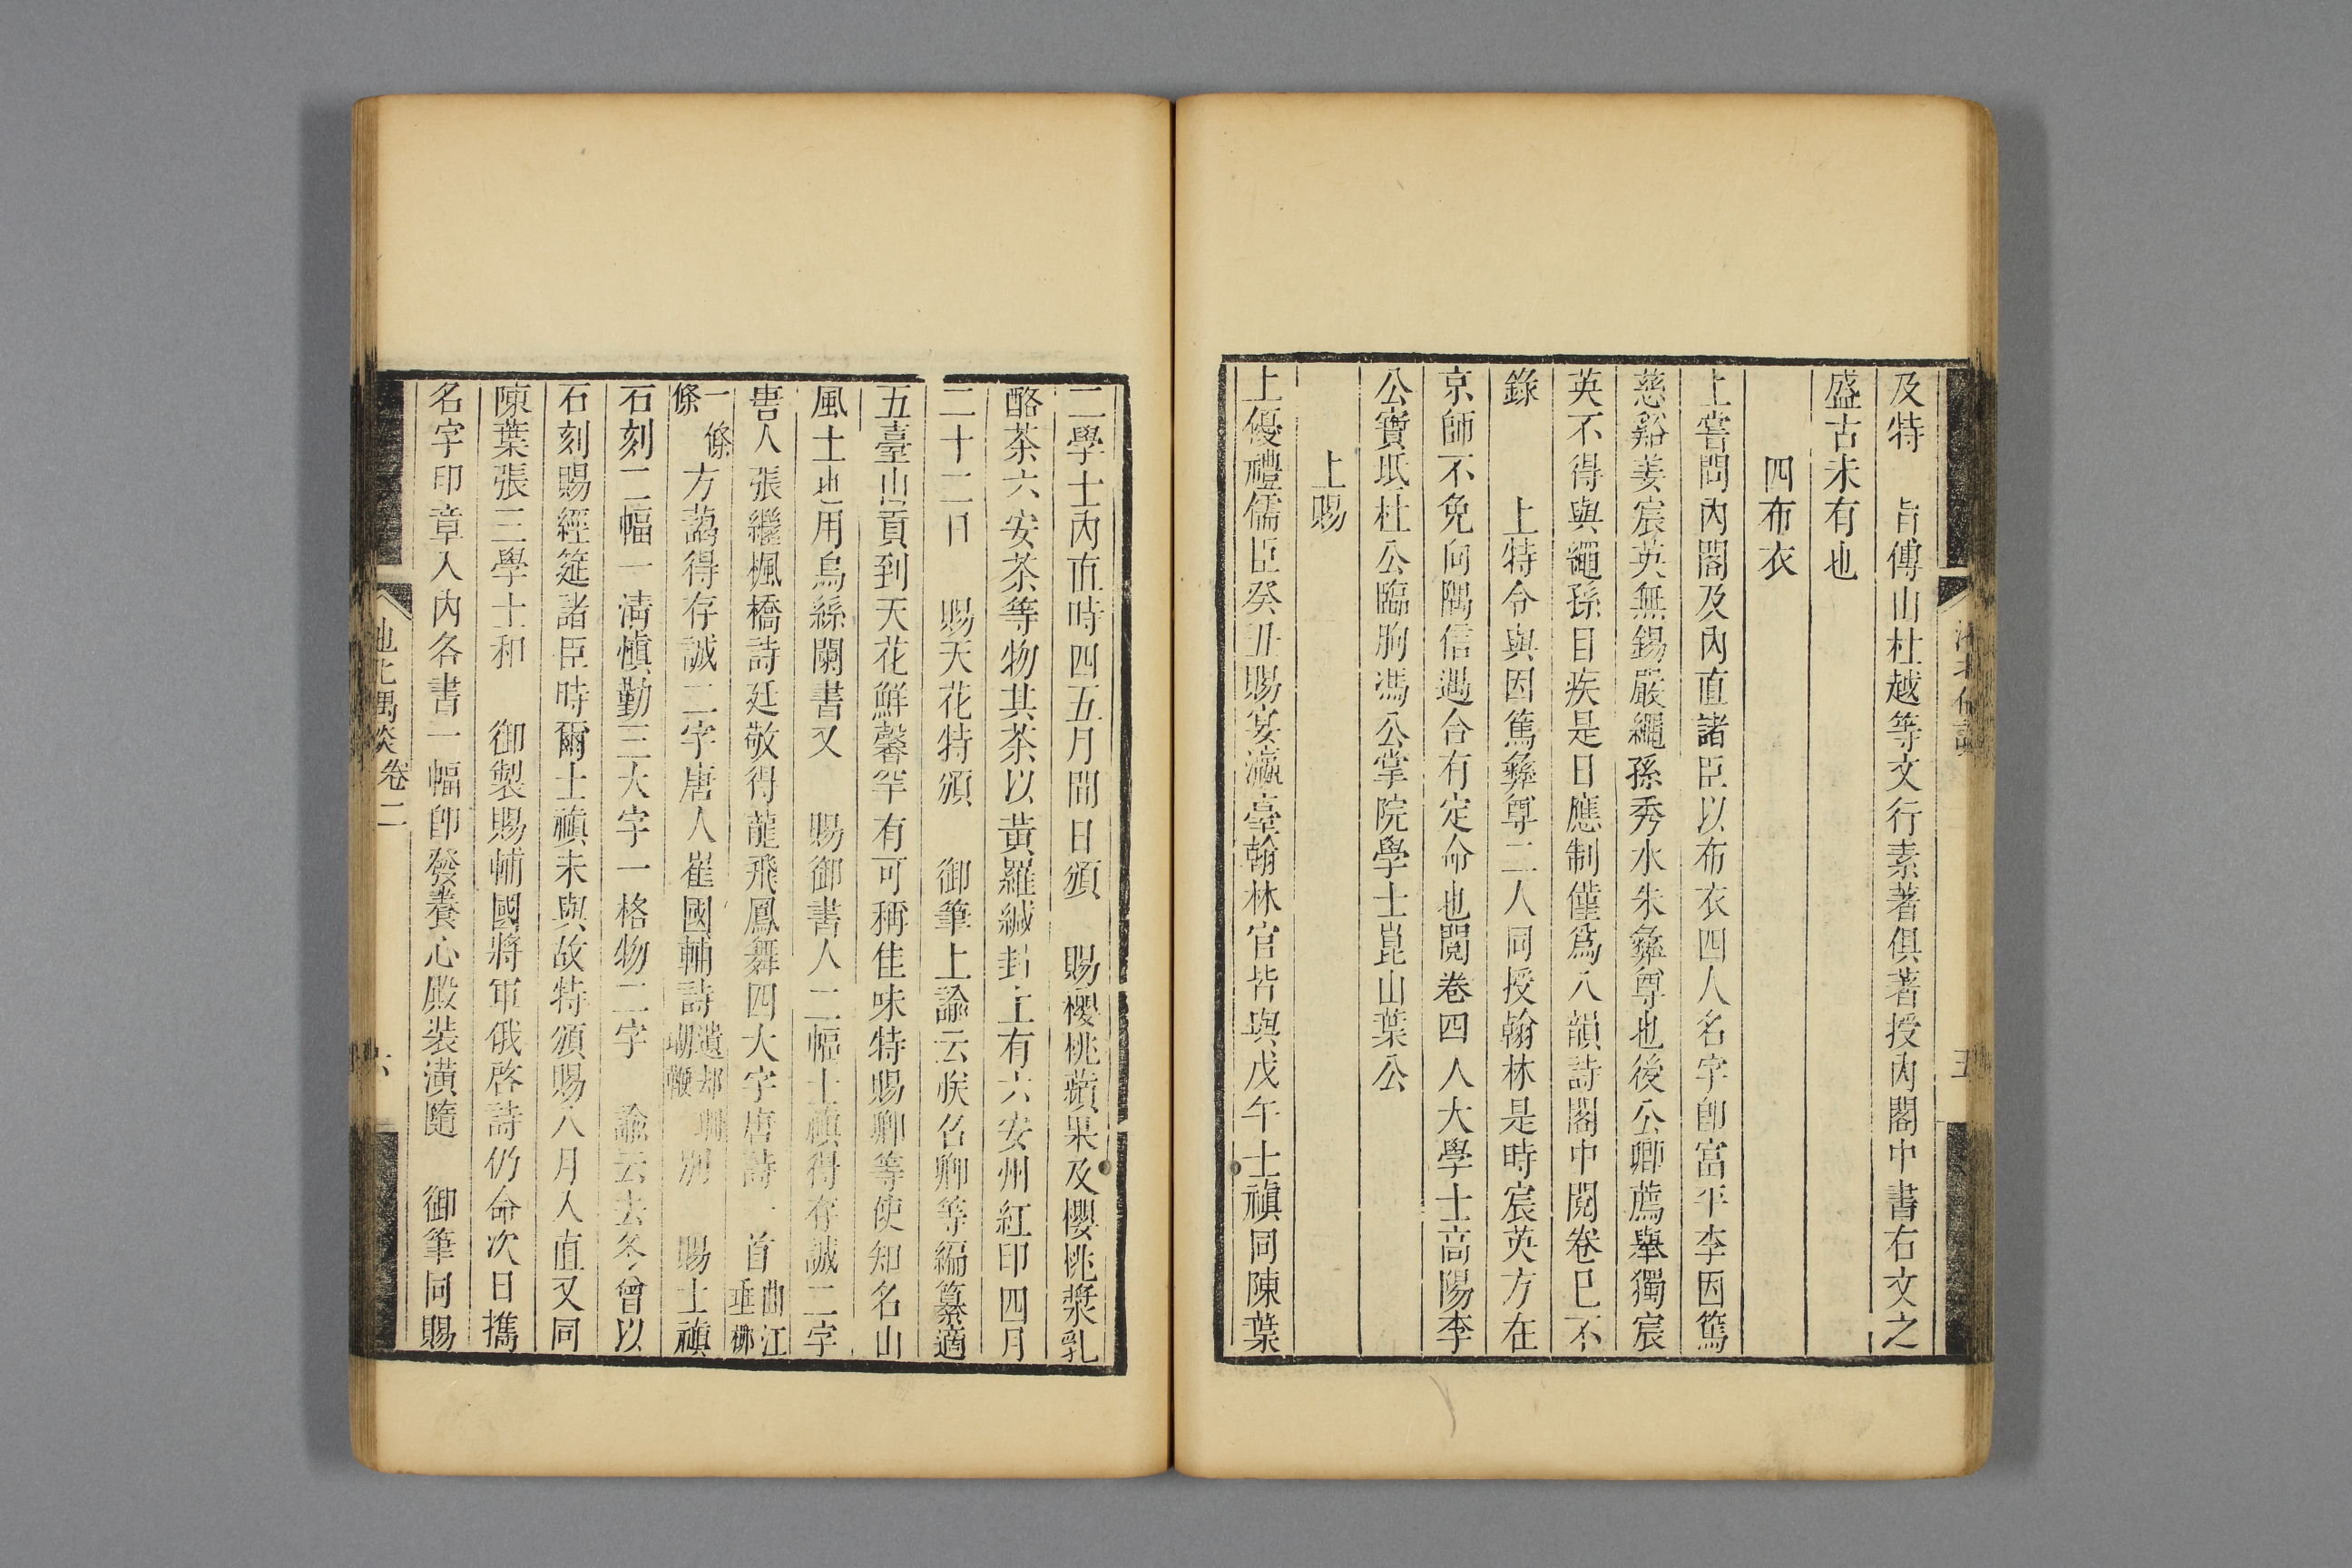 及特　旨傅山杜越等文行素著俱著授內閣中書右文之
盛古未有也
四布衣
上嘗問內閣及內直諸臣以布衣四人名字卽富平李因篤
慈谿姜宸英無錫嚴繩孫秀水朱彝尊也後公卿薦舉獨宸
英不得與繩孫目疾是日應制僅爲八韻詩閣中閱卷巳不
錄　　上特令與因篤彝尊二人同授翰林是時宸英方在
京師不免向隅信遇合有定命也閱卷四人大學士高陽李
公寶坻杜公臨朐馮公掌院學士崑山葉公
上賜
上優禮儒臣癸丑賜宴瀛臺翰林官皆與戊午士禛同陳葉
二學士內直時四五月間日頒　賜櫻桃蘋果及櫻桃漿乳
酪茶六安茶等物其茶以黃羅緘封上有六安州紅印四月
二十二日　賜天花特頒　御筆上諭云朕召卿等編纂適
五臺山貢到天花鮮馨罕有可稱佳味特賜卿等使知名山
風土也用烏絲闌書又　賜御書人二幅士禛得存誠二字
唐人張繼楓橋詩廷敬得龍飛鳳舞四大字唐詩一首曲江垂柳
一條條方藹得存誠二字唐人崔國輔詩遺却珊瑚鞭別　賜士禛
石刻二幅一淸愼勤三大字一格物二字　諭云去冬曾以
石刻賜經筵諸臣時爾士禛未與故特頒賜八月入直又同
陳葉張三學士和　御製賜輔國將軍俄啓詩仍命次日攜
名字印章入內各書一幅卽發養心殿裝潢隨　御筆同賜
卷二
五